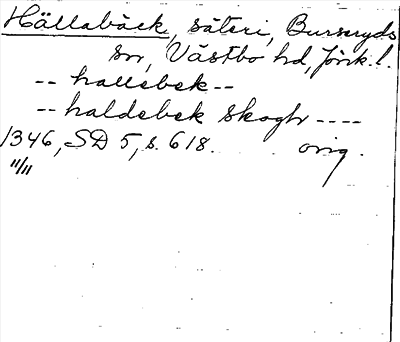 Hällabäck, säteri, Burseryds
sn, Västbo hd, Jönk. l.
-- hallebek --
-- haldebek skogh ----
1346, SD 5, s. 618. orig.
"/11